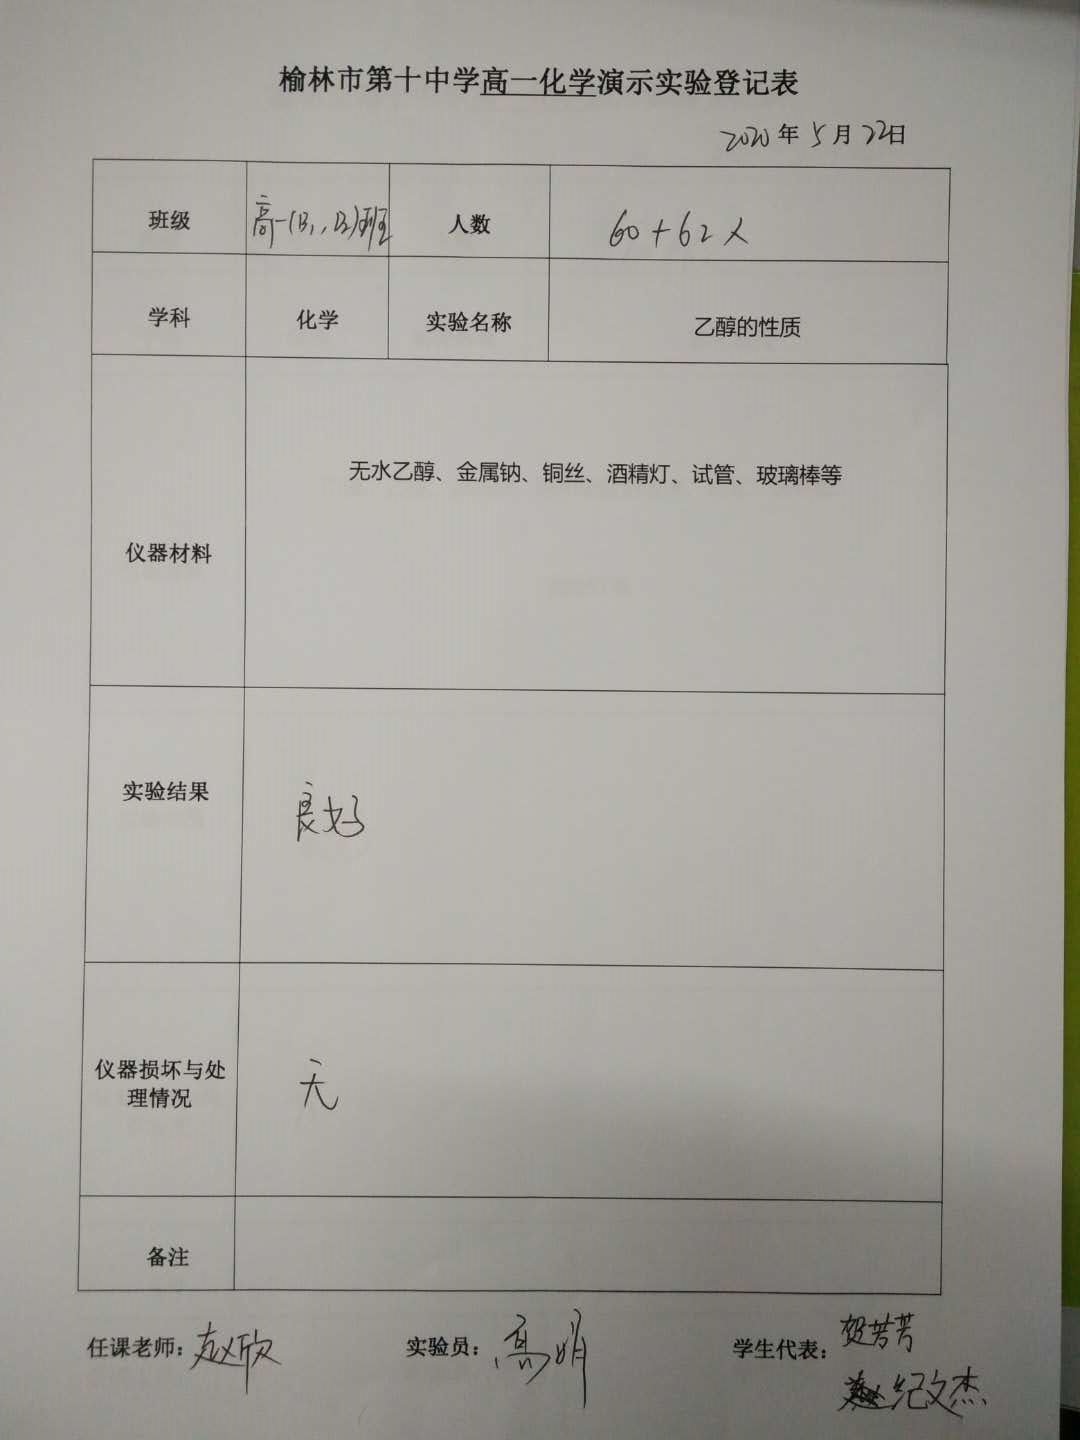 榆林市第十中学高一化学演示实验登记表
2020年5月22日
班级 高一(B1,B2)班 人数 60+62人
学科 化学 实验名称 乙醇的性质
仪器材料 无水乙醇、金属钠、铜丝、酒精灯、试管、玻璃棒等
实验结果 良好
仪器损坏与处
理情况 无
备注
任课老师：赵欣 实验员：高娟 学生代表：贺芳芳
纪文杰